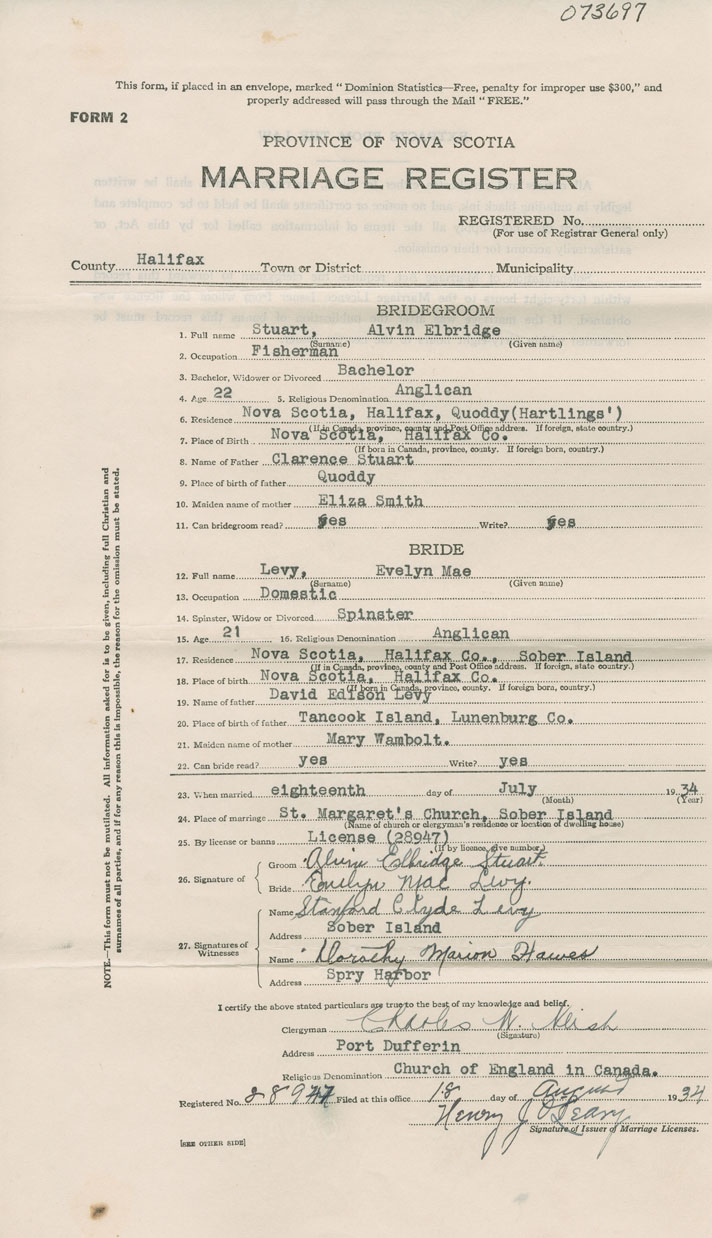 073697
This form, if placed in an envelope, marked "Dominion Statistics—Free, penalty for improper use $300," and
properly addressed will pass through the Mail "FREE."
FORM 2
PROVINCE OF NOVA SCOTIA
MARRIAGE REGISTER
REGISTERED No.
(For use of Registrar General only)
County Halifax Town or District Municipality
BRIDEGROOM
1. Full name Stuart, Alvin Elbridge
(Surname) (Given name)
2. Occupation Fisherman
3. Bachelor, Widower or Divorced Bachelor
4. Age 22 5. Religious Denomination Anglican
6. Residence Nova Scotia, Halifax, Quoddy(Hartlings')
(If in Canada, province, county and Post Office address. If foreign, state country.)
7. Place of Birth Nova Scotia, Halifax Co.
(If born in Canada, province, county. If foreign born, country.)
8. Name of Father Clarence Stuart
9. Place of birth of father Quoddy
10. Maiden name of mother Eliza Smith
11. Can bridegroom read? yes Write? yes
BRIDE
12. Full name Levy, Evelyn Mae
(Surname) (Given name)
13. Occupation Domestic
14. Spinster, Widow or Divorced Spinster
15. Age 21 16. Religious Denomination Anglican
17. Residence Nova Scotia, Halifax Co., Sober Island
(If in Canada, province, county and Post Office address. If foreign, state country.)
18. Place of birth Nova Scotia, Halifax Co.
(If born in Canada, province, county. If foreign born, country.)
19. Name of father David Edison Levy
20. Place of birth of father Tancook Island, Lunenburg Co.
21. Maiden name of mother Mary Wambolt.
22. Can bride read? yes Write? yes
23. When married eighteenth day of July 1934
(Month) (Year)
24. Place of marriage St. Margaret's Church, Sober Island
(Name of church or clergyman's residence or location of dwelling house)
25. By license or banns License (28947)
(If by licence, give number.)
26. Signature of
Groom Alvin Elbridge Stuart
Bride Evelyn Mae Levy.
27. Signatures of Witnesses
Name Stanford Clyde Levy
Address Sober Island
Name Dorothy Marion Hawes
Address Spry Harbor
NOTE.—This form must not be mutilated. All information asked for is to be given, including full Christian and
surnames of all parties, and if for any reason this is impossible, the reason for the omission must be stated.
I certify the above stated particulars are true to the best of my knowledge and belief.
Clergyman Charles W.
(Signature)
Address Port Dufferin
Religious Denomination Church of England in Canada.
Registered No. 28947 Filed at this office 18 day of August 1934
Henry J O'Leary
Signature of Issuer of Marriage Licenses.
[SEE OTHER SIDE]